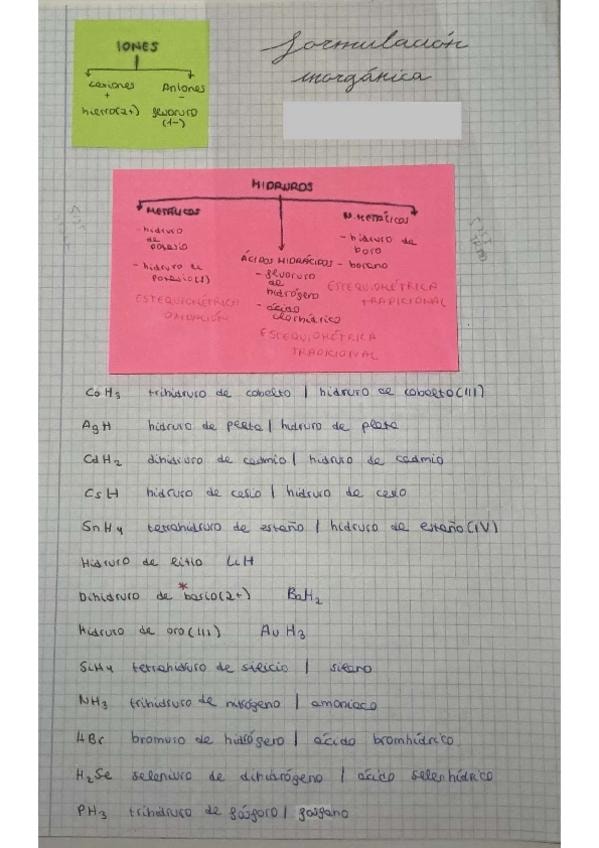 formulación
inorgánica
IONES
cationes
+
hierro(2+)
Aniones
-
fluoruro
(1-)
HIDRUROS
METÁLICOS
- hidruro
de
potasio
- hidruro de
potasio(I)
ESTEQUIOMÉTRICA
OXIDACIÓN
ÁCIDOS HIDRÁCIDOS
- fluoruro
de
hidrógeno
- ácido
clorhídrico
ESTEQUIOMÉTRICA
TRADICIONAL
N. METÁLICOS
- hidruro de
boro
- borano
ESTEQUIOMÉTRICA
TRADICIONAL
CoH3 trihidruro de cobalto | hidruro de cobalto(III)
AgH hidruro de plata | hidruro de plata
CdH2 dihidruro de cadmio | hidruro de cadmio
CsH hidruro de cesio | hidruro de cesio
SnH4 tetrahidruro de estaño | hidruro de estaño(IV)
Hidruro de litio LiH
Dihidruro de *bario(2+) BaH2
hidruro de oro(III) AuH3
SiH4 tetrahidruro de silicio | silano
NH3 trihidruro de nitrógeno | amoniaco
HBr bromuro de hidrógeno | ácido bromhídrico
H2Se seleniuro de dihidrógeno | ácido selenhídrico
PH3 trihidruro de fósforo | fosfano